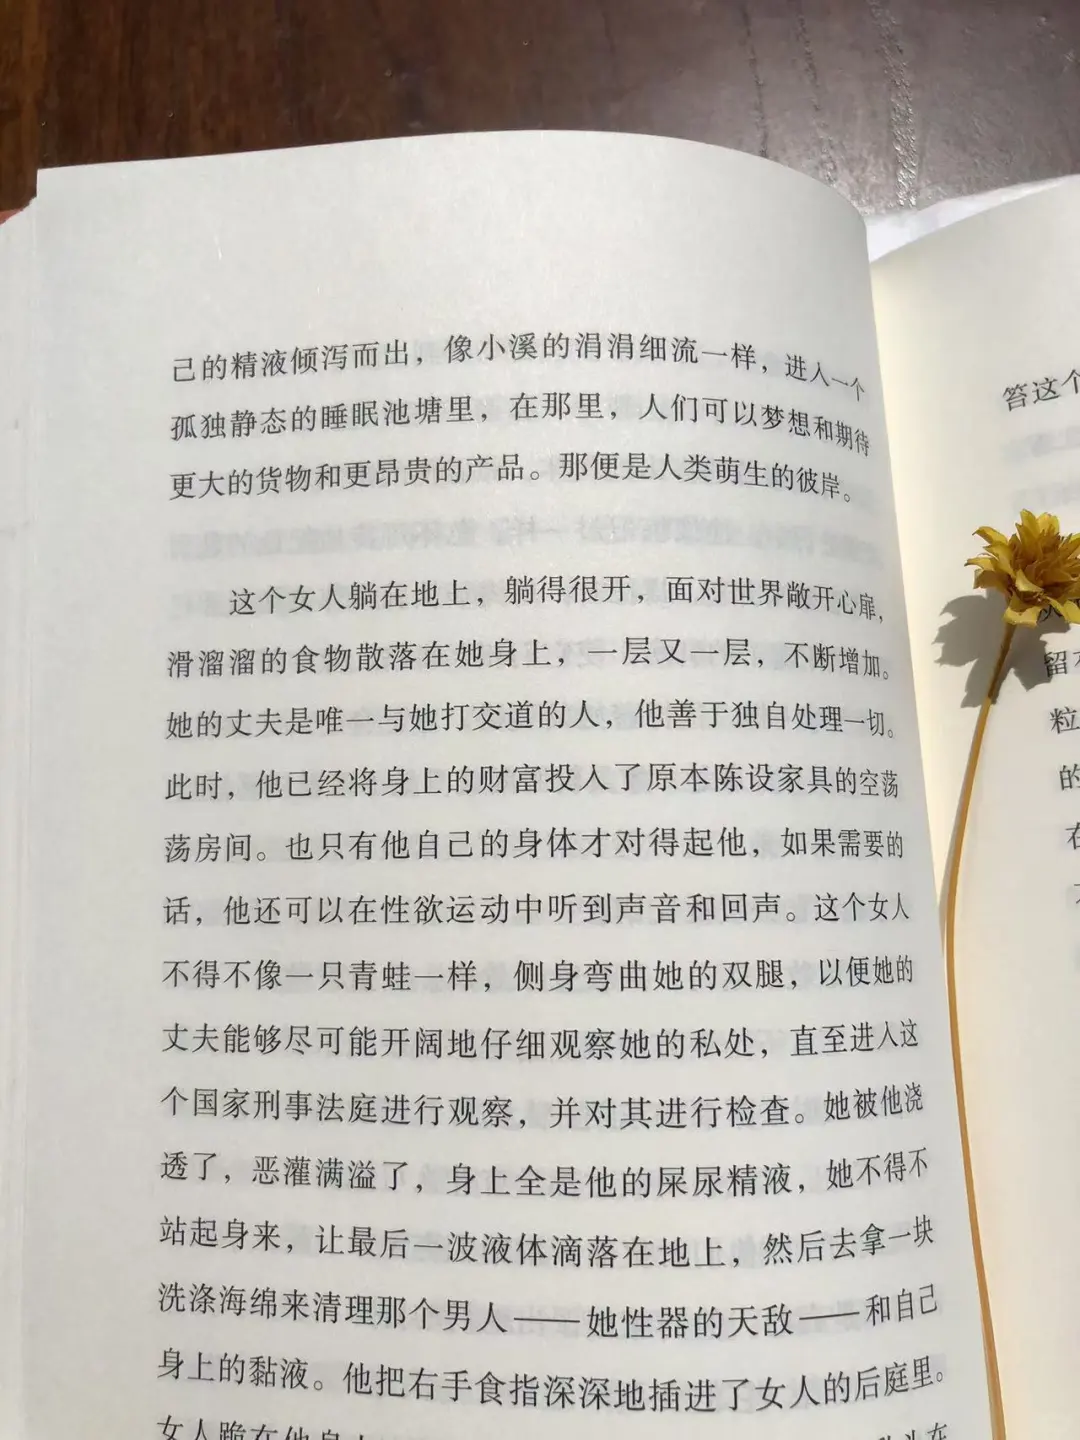 己的精液倾泻而出，像小溪的涓涓细流一样，进入一个
孤独静态的睡眠池塘里，在那里，人们可以梦想和期待
更大的货物和更昂贵的产品。那便是人类萌生的彼岸。
这个女人躺在地上，躺得很开，面对世界敞开心扉，
滑溜溜的食物散落在她身上，一层又一层，不断增加。
她的丈夫是唯一与她打交道的人，他善于独自处理一切。
此时，他已经将身上的财富投入了原本陈设家具的空荡
荡房间。也只有他自己的身体才对得起他，如果需要的
话，他还可以在性欲运动中听到声音和回声。这个女人
不得不像一只青蛙一样，侧身弯曲她的双腿，以便她的
丈夫能够尽可能开阔地仔细观察她的私处，直至进入这
个国家刑事法庭进行观察，并对其进行检查。她被他浇
透了，恶灌满溢了，身上全是他的屎尿精液，她不得不
站起身来，让最后一波液体滴落在地上，然后去拿一块
洗涤海绵来清理那个男人——她性器的天敌——和自己
身上的黏液。他把右手食指深深地插进了女人的后庭里。
女人跪在他身上
答这个
留
粒
的
在